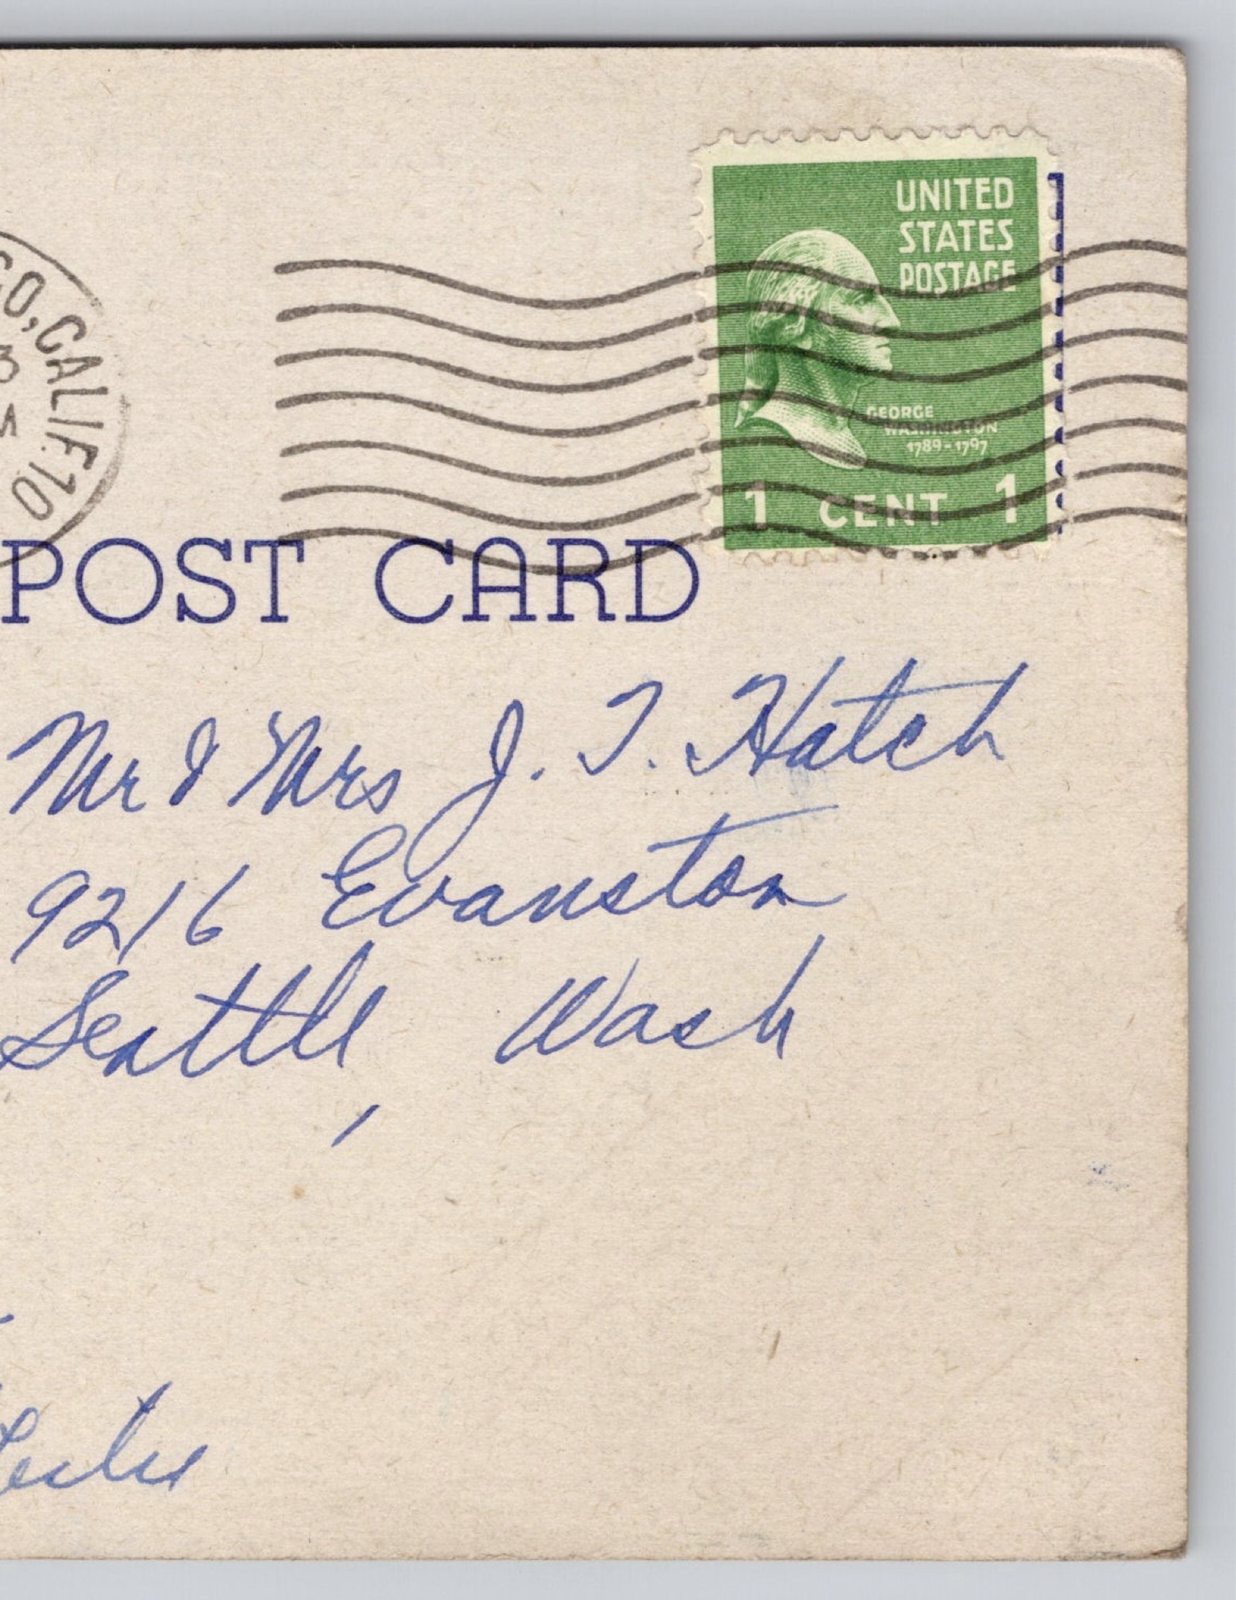 CO, CALIF. 10
3
UNITED
STATES
POSTAGE
GEORGE
WASHINGTON
1789-1797
1 CENT 1
POST CARD
Mr & Mrs J. T. Hatch
9216 Evanston
Seattle, Wash
Leslie